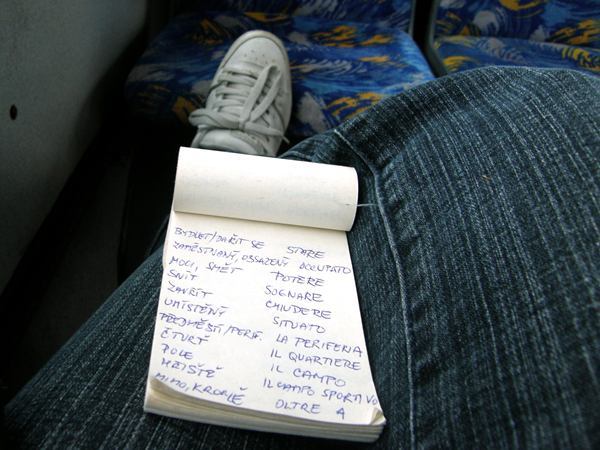 BYDLET/DAŘIT SE STARE
ZAMĚSTNANÝ, OBSAZENÝ OCCUPATO
MOCI, SMĚT POTERE
SNÍT SOGNARE
ZAVŘÍT CHIUDERE
UMÍSTĚNÝ SITUATO
PŘEDMĚSTÍ/PERIF. LA PERIFERIA
ČTVRŤ IL QUARTIERE
POLE IL CAMPO
HŘIŠTĚ IL CAMPO SPORTIVO
MIMO, KROMĚ OLTRE A